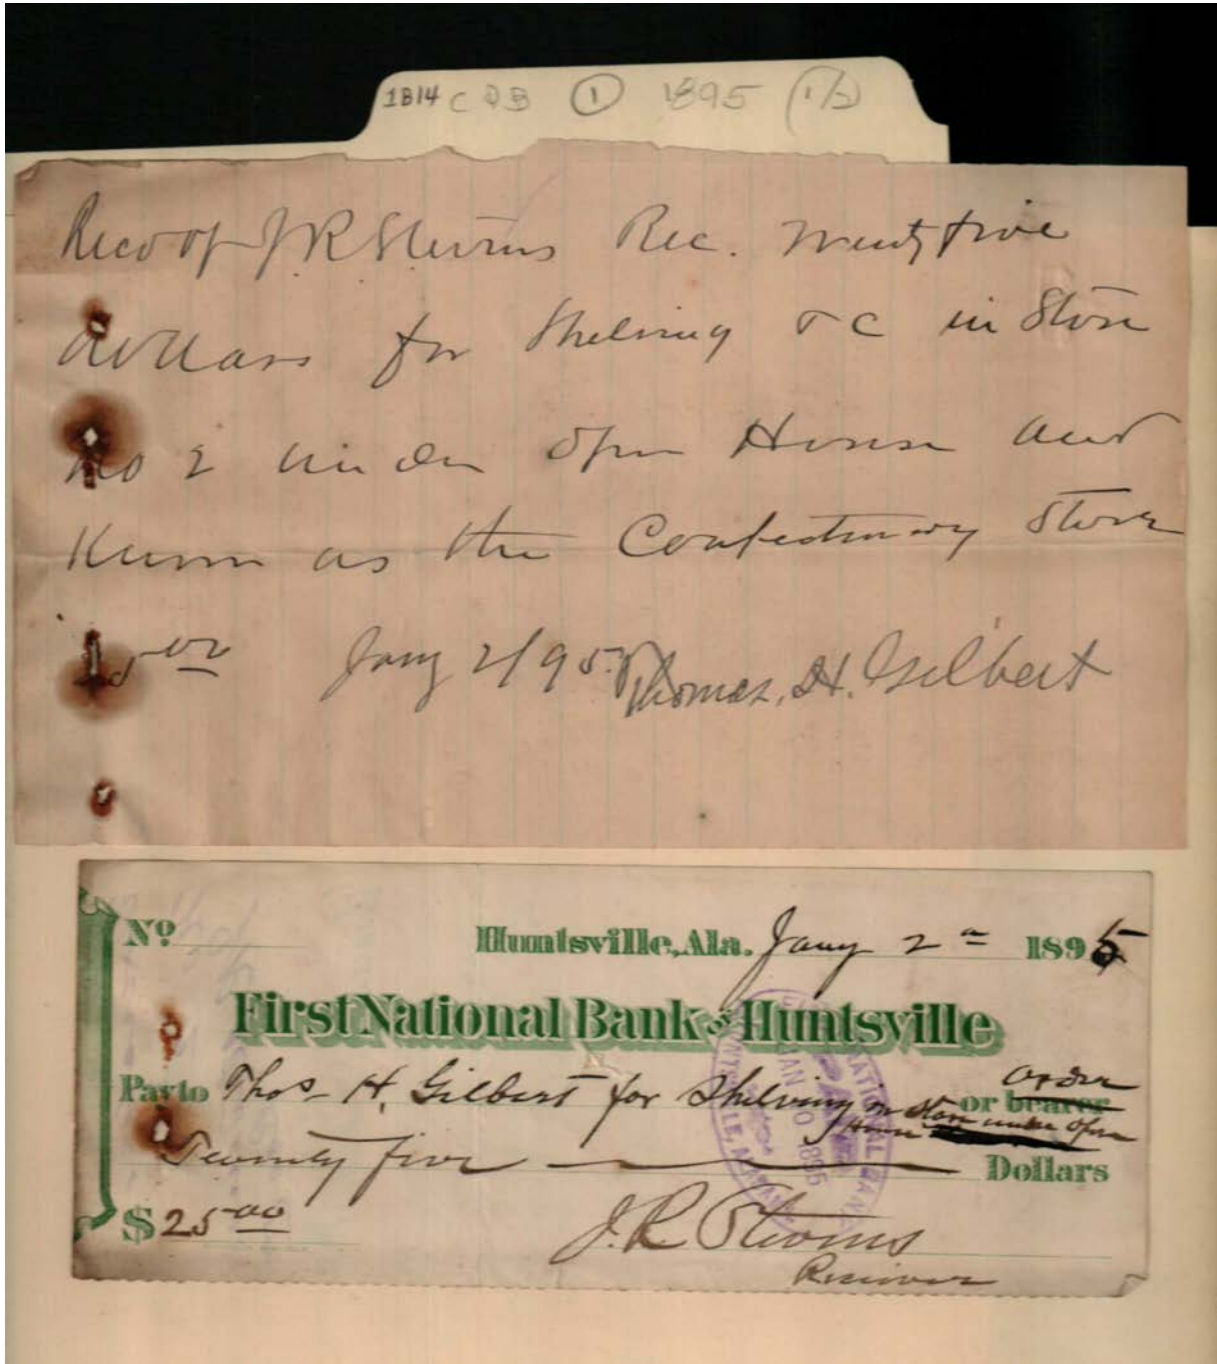 1B14 C 93 1 1895 (1/2)
Recd of J R Stevens Rec. Twenty five
dollars for Shelving &C in Store
No 2 under Opra House and
Known as the Confectionary Store
25 00 Jany 2/95. Thomas, H. Gilbert
No Huntsville, Ala. Jany 2 1895
First National Bank of Huntsville
Pay to Thos H. Gilbert for Shelving in Store under Opra House or bearer Order
Twenty five Dollars
$25 00
J. R. Stevens
Receiver